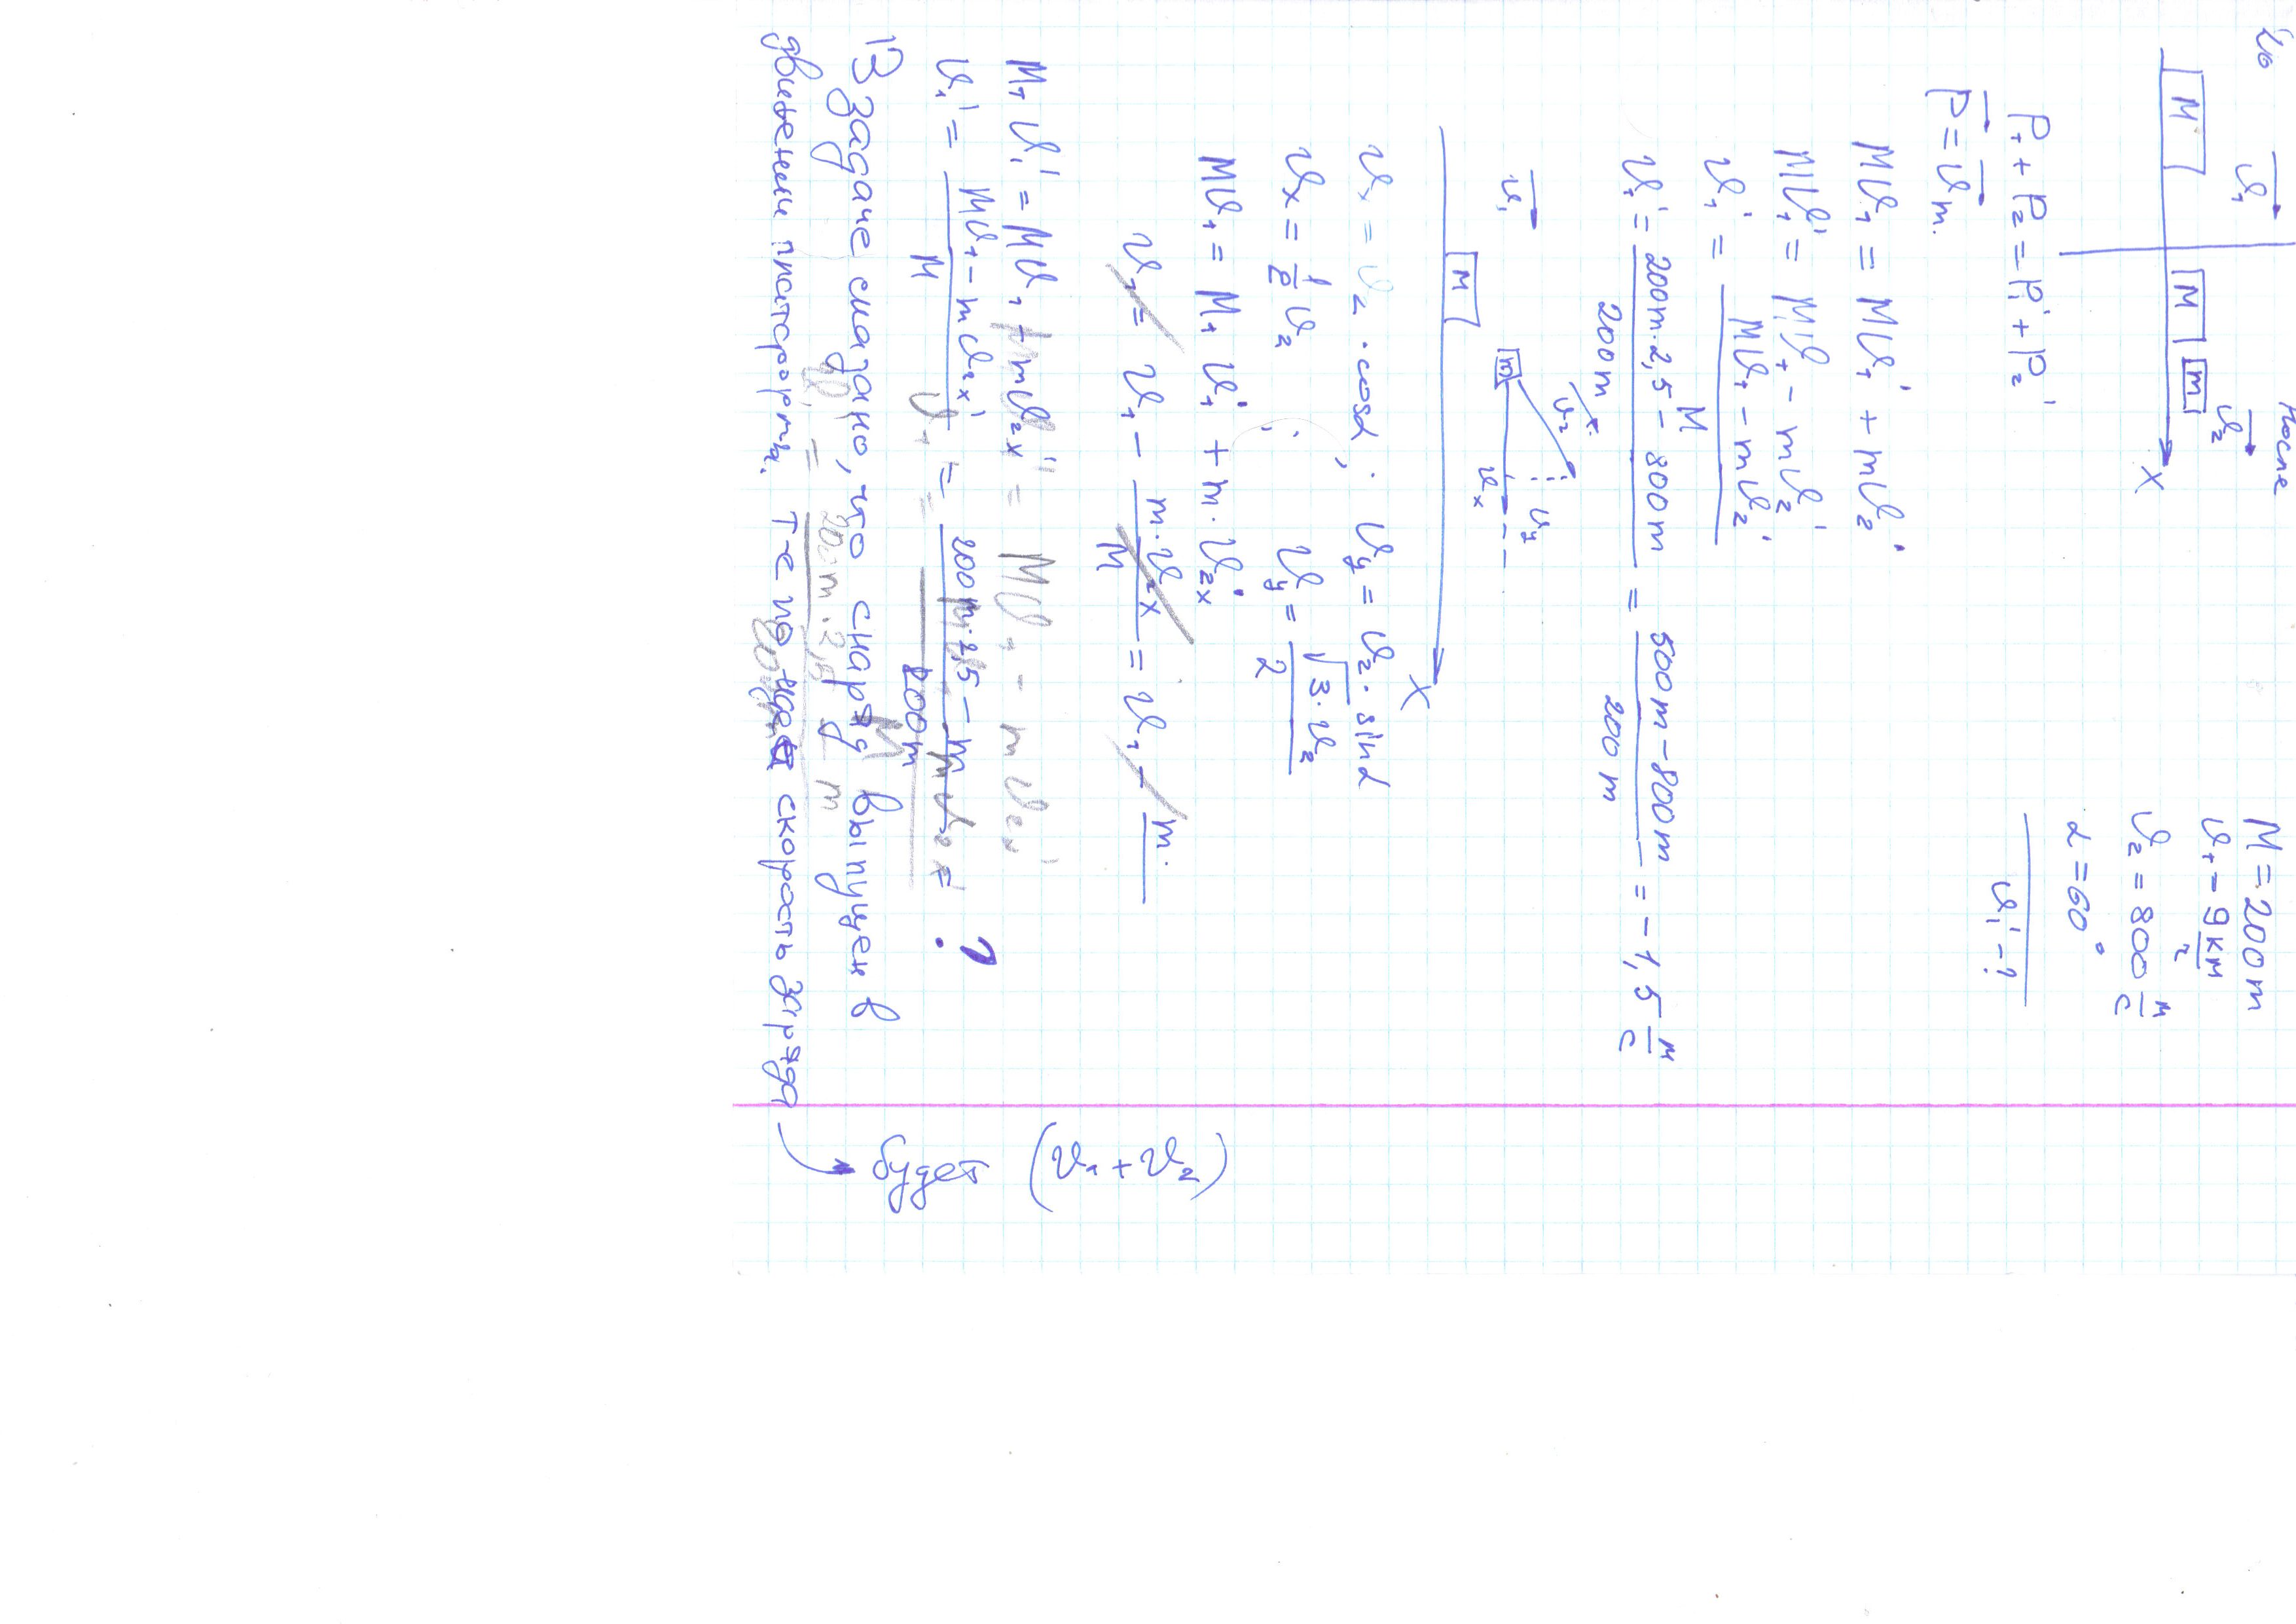 v₁ после
M M m v₂ X
M = 200m
P₁ + P₂ = P₁' + P₂'
v₁ = 9 км/ч
P = vm.
v₂ = 800 м/с
α = 60°
Mv₁ = Mv₁' + mv₂'
v₁' - ?
Mv₁' = Mv₁ - mv₂'
v₁' = (Mv₁ - mv₂') / M
v₁' = (200m · 2,5 - 800m) / 200m = (500m - 800m) / 200m = -1,5 м/с
v₁ m v₂ vy vx
M X
vx = v₂ · cosα; vy = v₂ · sinα
vx = 1/2 v₂; vy = √3 · v₂ / 2
Mv₁ = M₁v₁' + m · v₂x'
v₁ = v₁ - m · v₂x / M = v₁ - m
M₁v₁' = Mv₁ + mv₂x' = Mv₁ - mv₂x'
v₁' = (Mv₁ - mv₂x') / M = (200m · 2,5 - mv₂x') / 200m = ?
В задаче сказано, что снаряд выпущен в
движении платформы. т-е по скорость заряда
будет (v₁ + v₂)